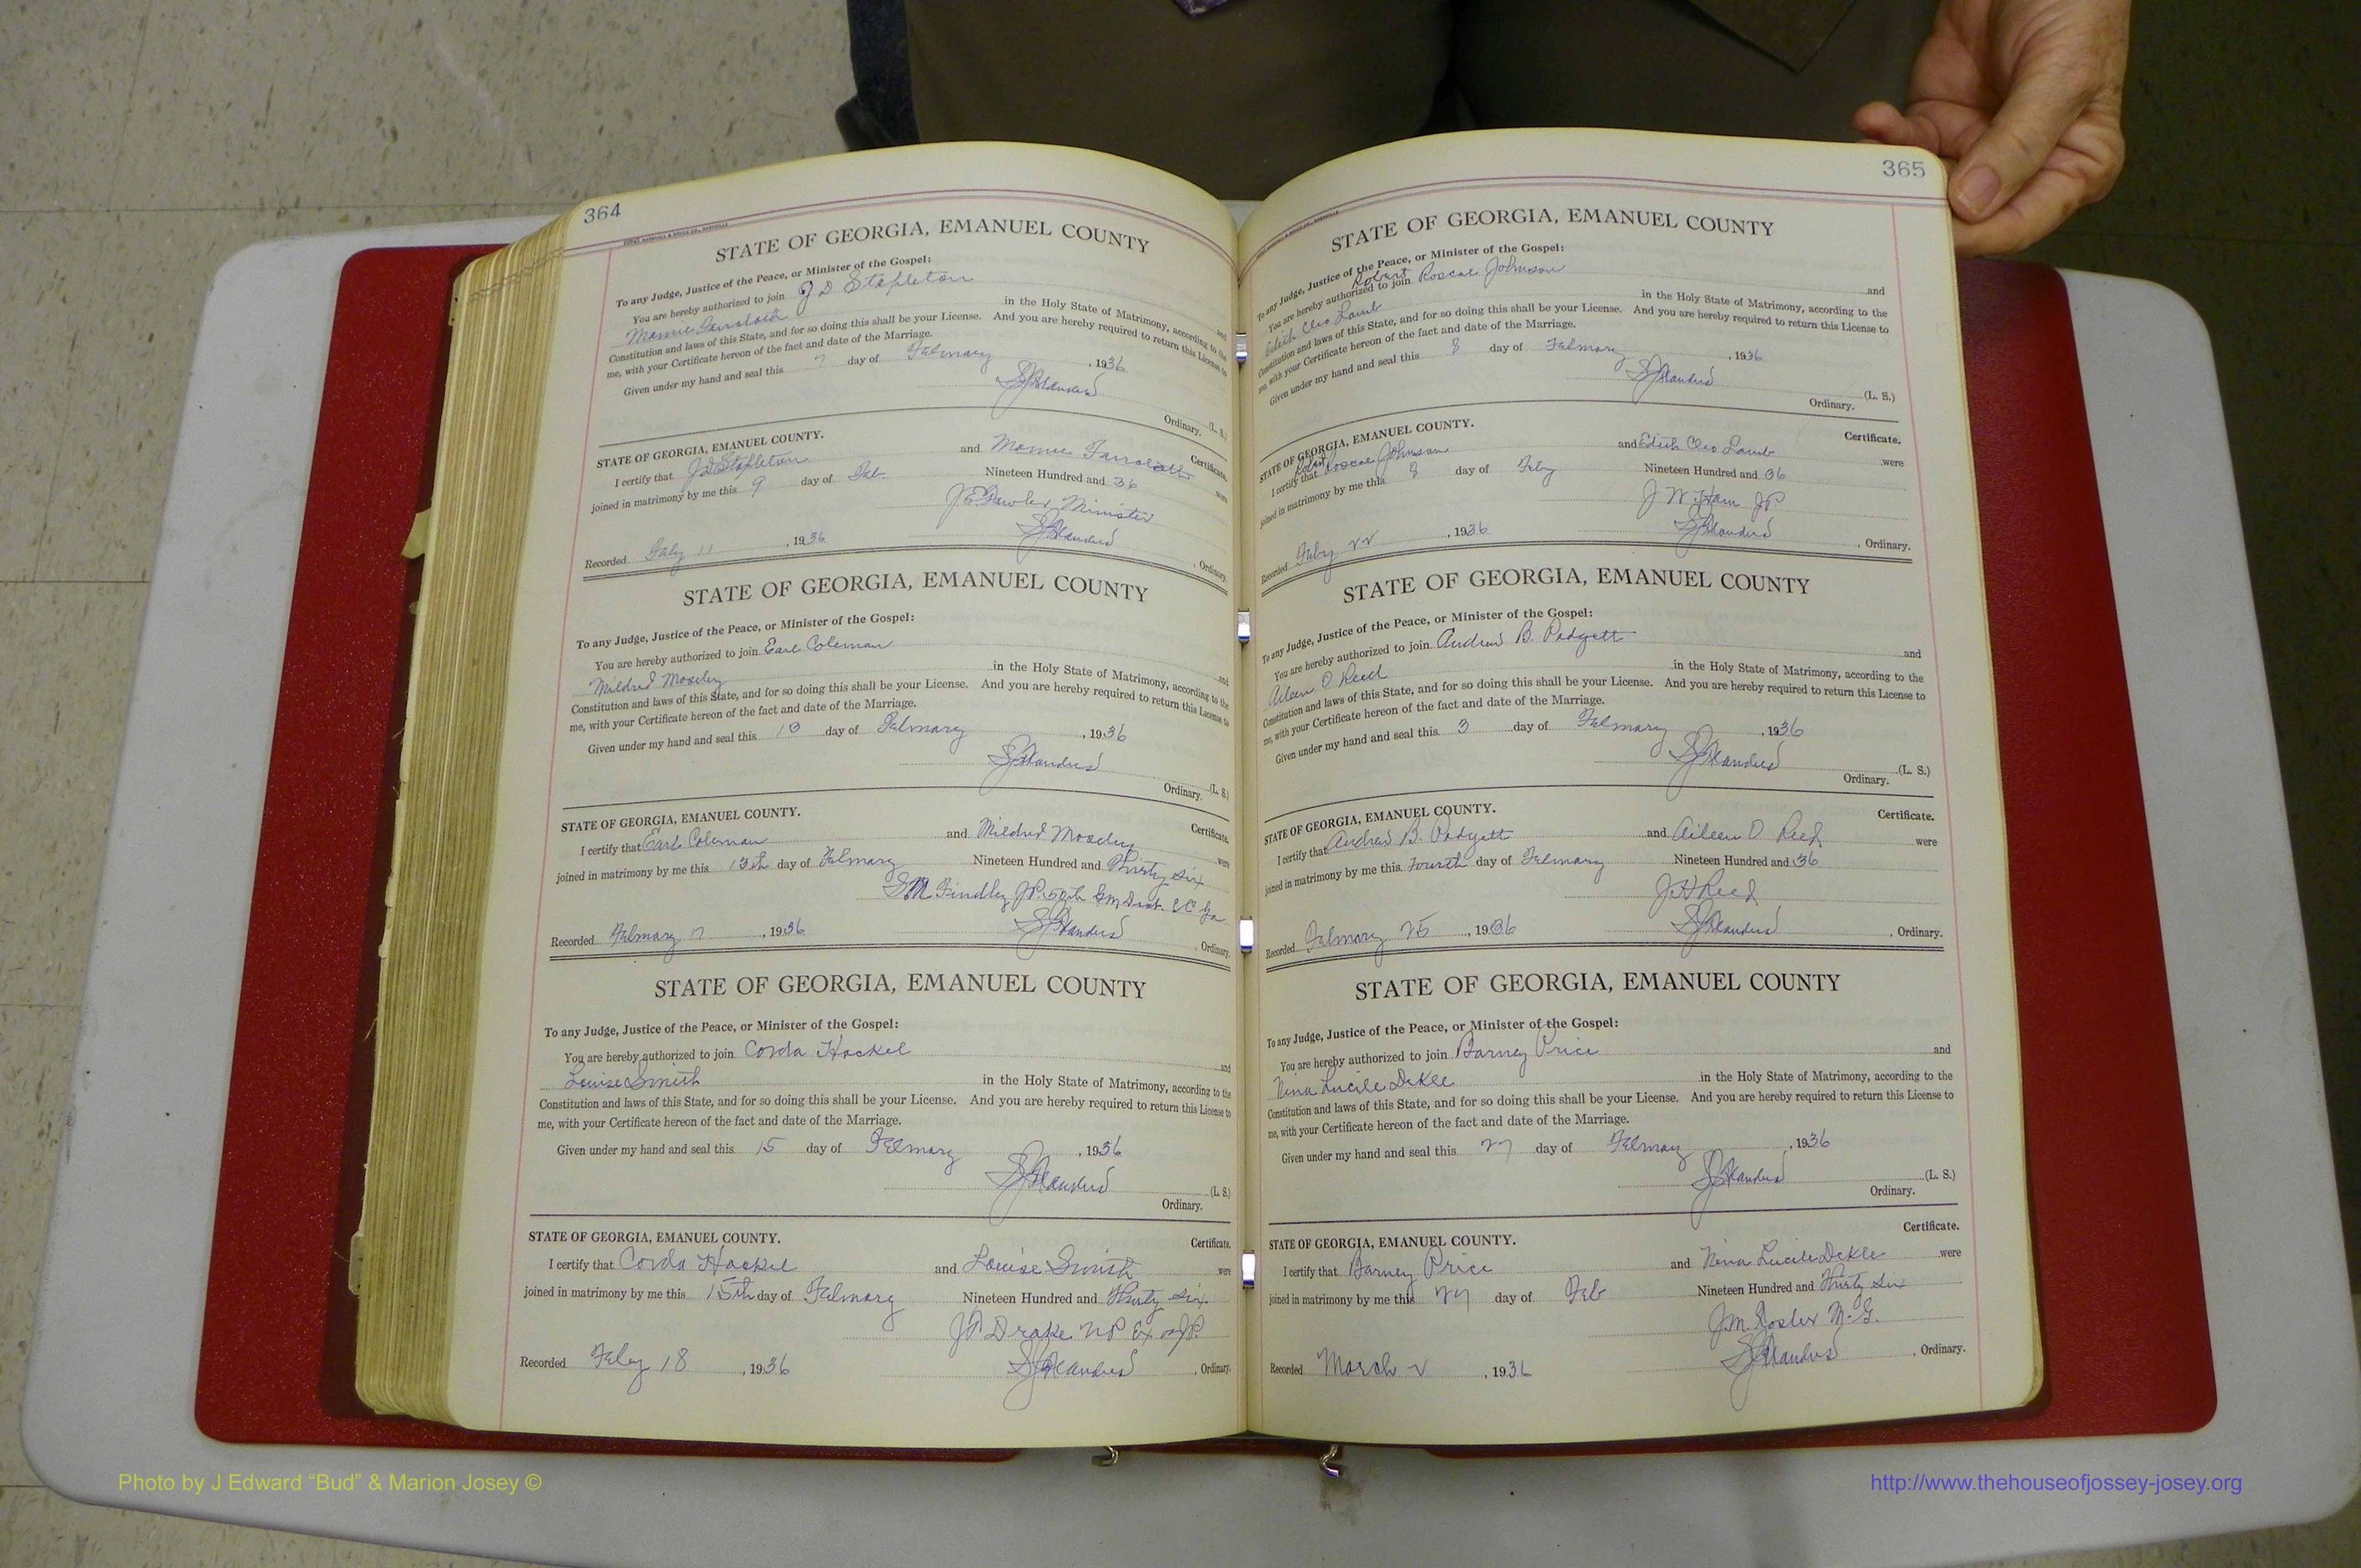 364
STATE OF GEORGIA, EMANUEL COUNTY
To any Judge, Justice of the Peace, or Minister of the Gospel:
You are hereby authorized to join J D Stapleton and
in the Holy State of Matrimony, according to the
Constitution and laws of this State, and for so doing this shall be your License. And you are hereby required to return this License to
me, with your Certificate hereon of the fact and date of the Marriage.
Given under my hand and seal this 7 day of February, 1936.
(L. S.)
Ordinary.
STATE OF GEORGIA, EMANUEL COUNTY. Certificate.
I certify that J D Stapleton and were
joined in matrimony by me this 9 day of Feb. Nineteen Hundred and 36
Minister
Recorded Feby 11, 1936 , Ordinary.
STATE OF GEORGIA, EMANUEL COUNTY
To any Judge, Justice of the Peace, or Minister of the Gospel:
You are hereby authorized to join Earl Coleman and
Mildred Moseley in the Holy State of Matrimony, according to the
Constitution and laws of this State, and for so doing this shall be your License. And you are hereby required to return this License to
me, with your Certificate hereon of the fact and date of the Marriage.
Given under my hand and seal this 13 day of February, 1936
(L. S.)
Ordinary.
STATE OF GEORGIA, EMANUEL COUNTY. Certificate.
I certify that Earl Coleman and Mildred Moseley were
joined in matrimony by me this 13th day of February Nineteen Hundred and Thirty Six
Findley J P. 50th GM Dist. E C Ga
Recorded February 17, 1936 , Ordinary.
STATE OF GEORGIA, EMANUEL COUNTY
To any Judge, Justice of the Peace, or Minister of the Gospel:
You are hereby authorized to join Corda Hackel and
Louise Smith in the Holy State of Matrimony, according to the
Constitution and laws of this State, and for so doing this shall be your License. And you are hereby required to return this License to
me, with your Certificate hereon of the fact and date of the Marriage.
Given under my hand and seal this 15 day of February, 1936
(L. S.)
Ordinary.
STATE OF GEORGIA, EMANUEL COUNTY. Certificate.
I certify that Corda Hackel and Louise Smith were
joined in matrimony by me this 15th day of February Nineteen Hundred and Thirty Six.
J P Drake N P Ex off J P.
Recorded Feby 18, 1936 , Ordinary.
365
STATE OF GEORGIA, EMANUEL COUNTY
To any Judge, Justice of the Peace, or Minister of the Gospel:
You are hereby authorized to join Robert Roscoe Johnson and
Edith Cleo Lamb in the Holy State of Matrimony, according to the
Constitution and laws of this State, and for so doing this shall be your License. And you are hereby required to return this License to
me, with your Certificate hereon of the fact and date of the Marriage.
Given under my hand and seal this 8 day of February, 1936
(L. S.)
Ordinary.
STATE OF GEORGIA, EMANUEL COUNTY. Certificate.
I certify that Robert Roscoe Johnson and Edith Cleo Lamb were
joined in matrimony by me this 8 day of Feby Nineteen Hundred and 36
J W Ham JP
Recorded Feby 22, 1936 , Ordinary.
STATE OF GEORGIA, EMANUEL COUNTY
To any Judge, Justice of the Peace, or Minister of the Gospel:
You are hereby authorized to join Andrew B. Padgett and
Aileen O Reed in the Holy State of Matrimony, according to the
Constitution and laws of this State, and for so doing this shall be your License. And you are hereby required to return this License to
me, with your Certificate hereon of the fact and date of the Marriage.
Given under my hand and seal this 3 day of February, 1936
(L. S.)
Ordinary.
STATE OF GEORGIA, EMANUEL COUNTY. Certificate.
I certify that Andrew B. Padgett and Aileen O Reed were
joined in matrimony by me this Fourth day of February Nineteen Hundred and 36
J H Reed
Recorded February 25, 1936 , Ordinary.
STATE OF GEORGIA, EMANUEL COUNTY
To any Judge, Justice of the Peace, or Minister of the Gospel:
You are hereby authorized to join Barney Price and
Nina Lucile Dekle in the Holy State of Matrimony, according to the
Constitution and laws of this State, and for so doing this shall be your License. And you are hereby required to return this License to
me, with your Certificate hereon of the fact and date of the Marriage.
Given under my hand and seal this 27 day of February, 1936
(L. S.)
Ordinary.
STATE OF GEORGIA, EMANUEL COUNTY. Certificate.
I certify that Barney Price and Nina Lucile Dekle were
joined in matrimony by me this 27 day of Feb Nineteen Hundred and Thirty Six
J. M. M. G.
Recorded March 2, 1936 , Ordinary.
Photo by J Edward “Bud” & Marion Josey ©
http://www.thehouseofjossey-josey.org